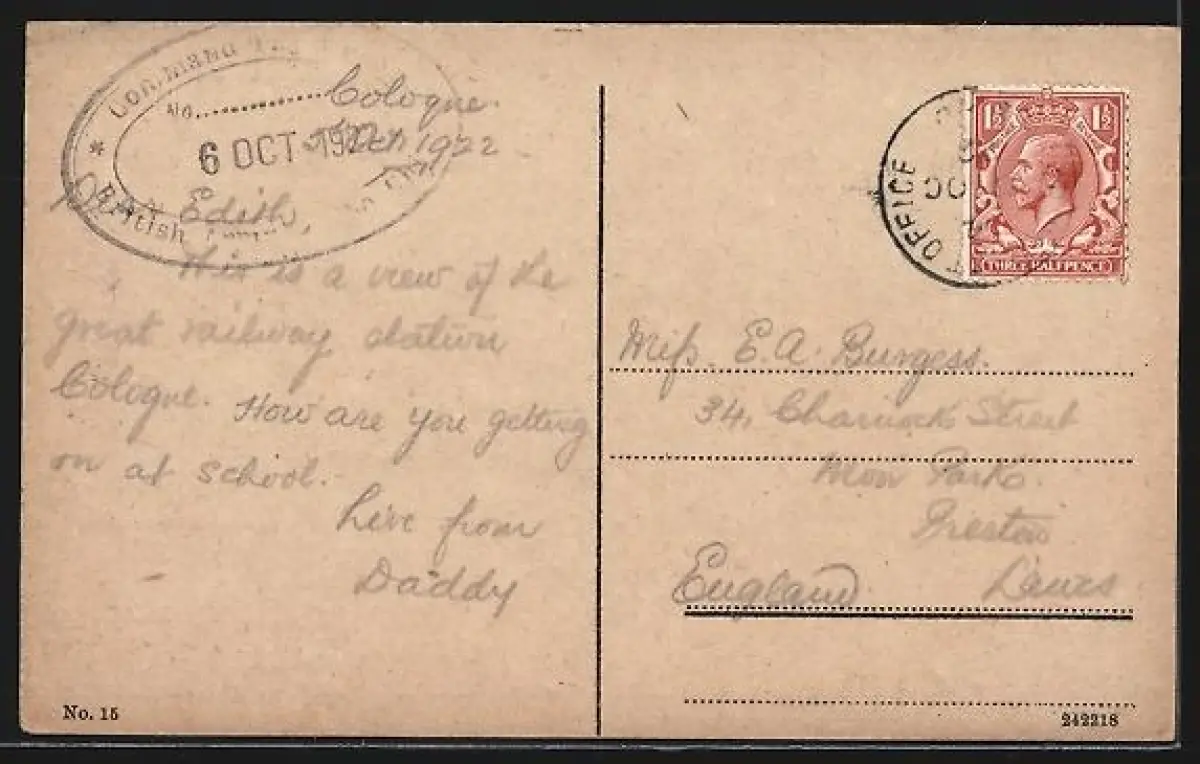 * Command
No.
6 OCT 192
British
Cologne.
1922
Edith,
This is a view of the
great railway station
Cologne. How are you getting
on at school.
Love from
Daddy
No. 15
OFFICE
OC
1½ 1½
THREE HALFPENCE
Miss. E. A. Burgess.
34, Charnock Street
Moor Park.
Preston
England Lancs
242218